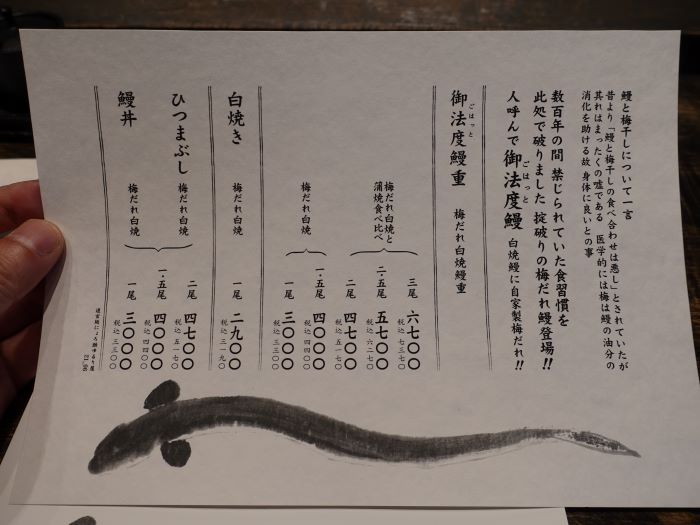 鰻と梅干しについて一言
昔より「鰻と梅干しの食べ合わせは悪し」とされていたが
其れはまったくの嘘である 医学的には梅は鰻の油分の
消化を助ける故 身体に良いとの事
数百年の間 禁じられていた食習慣を
此処で破りました 掟破りの梅だれ鰻登場!!
人呼んで御法度鰻 白焼鰻に自家製梅だれ!!
ごはっと
御法度鰻重 梅だれ白焼鰻重
ごはっと
梅だれ白焼と
蒲焼食べ比べ
三尾 六七〇〇
税込 七三七〇
二・五尾 五七〇〇
税込 六二七〇
二尾 四七〇〇
税込 五一七〇
梅だれ白焼
一・五尾 四〇〇〇
税込 四四〇〇
一尾 三〇〇〇
税込 三三〇〇
白焼き 梅だれ白焼 一尾 二九〇〇
税込 三一九〇
ひつまぶし 梅だれ白焼 二尾 四七〇〇
税込 五一七〇
一・五尾 四〇〇〇
税込 四四〇〇
鰻丼 梅だれ白焼 一尾 三〇〇〇
税込 三三〇〇